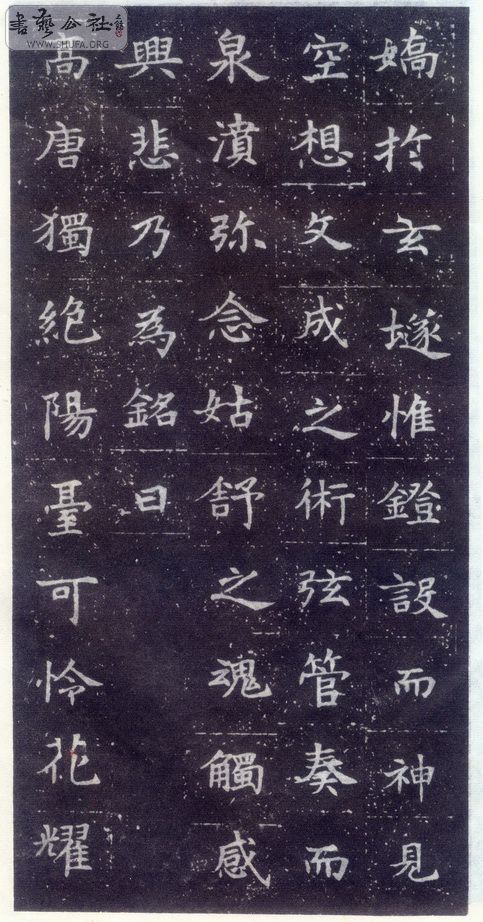 嬌於玄墜惟鐙設而神見
空想文成之術弦管奏而
泉濆弥念姑舒之魂觸感
興悲乃為銘曰
高唐獨絕陽臺可怜花耀
書藝公社
WWW.SHUFA.ORG